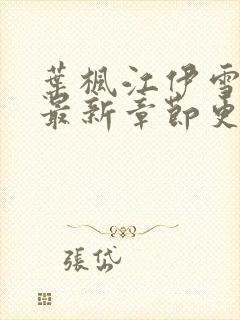 葉楓江伊雪
最新章節更
張岱